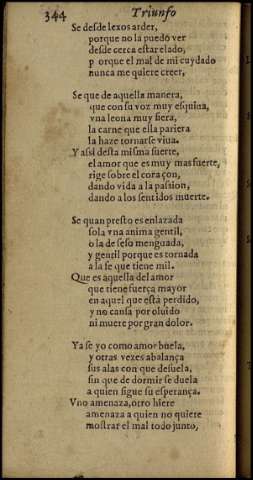 344 Triunfo
Se desde lexos arder,
porque no la puedo ver
desde cerca estar elado,
p orque el mal de mi cuydado
nunca me quiere creer,
Se que de aquella manera,
que con su voz muy esquiua,
vna leona muy fiera,
la carne que ella pariera
la haze tornarse viua.
Y assi desta misma suerte,
el amor que es muy mas fuerte,
rige sobre el coraçon,
dando vida a la passion,
dando a los sentidos muerte.
Se quan presto es enlazada
sola vna anima gentil,
o la de seso menguada,
y gentil porque es tornada
a la fe que tiene mil.
Que es aquella del amor
que tiene fuerça mayor
en aquel que està perdido,
y no cansa por oluido
ni muere por gran dolor.
Ya se yo como amor buela,
y otras vezes abalança
sus alas con que desuela,
sin que de dormir se duela
a quien sigue su esperança.
Vno amenaza, otro hiere
amenaza a quien no quiere
mostrar el mal todo junto,